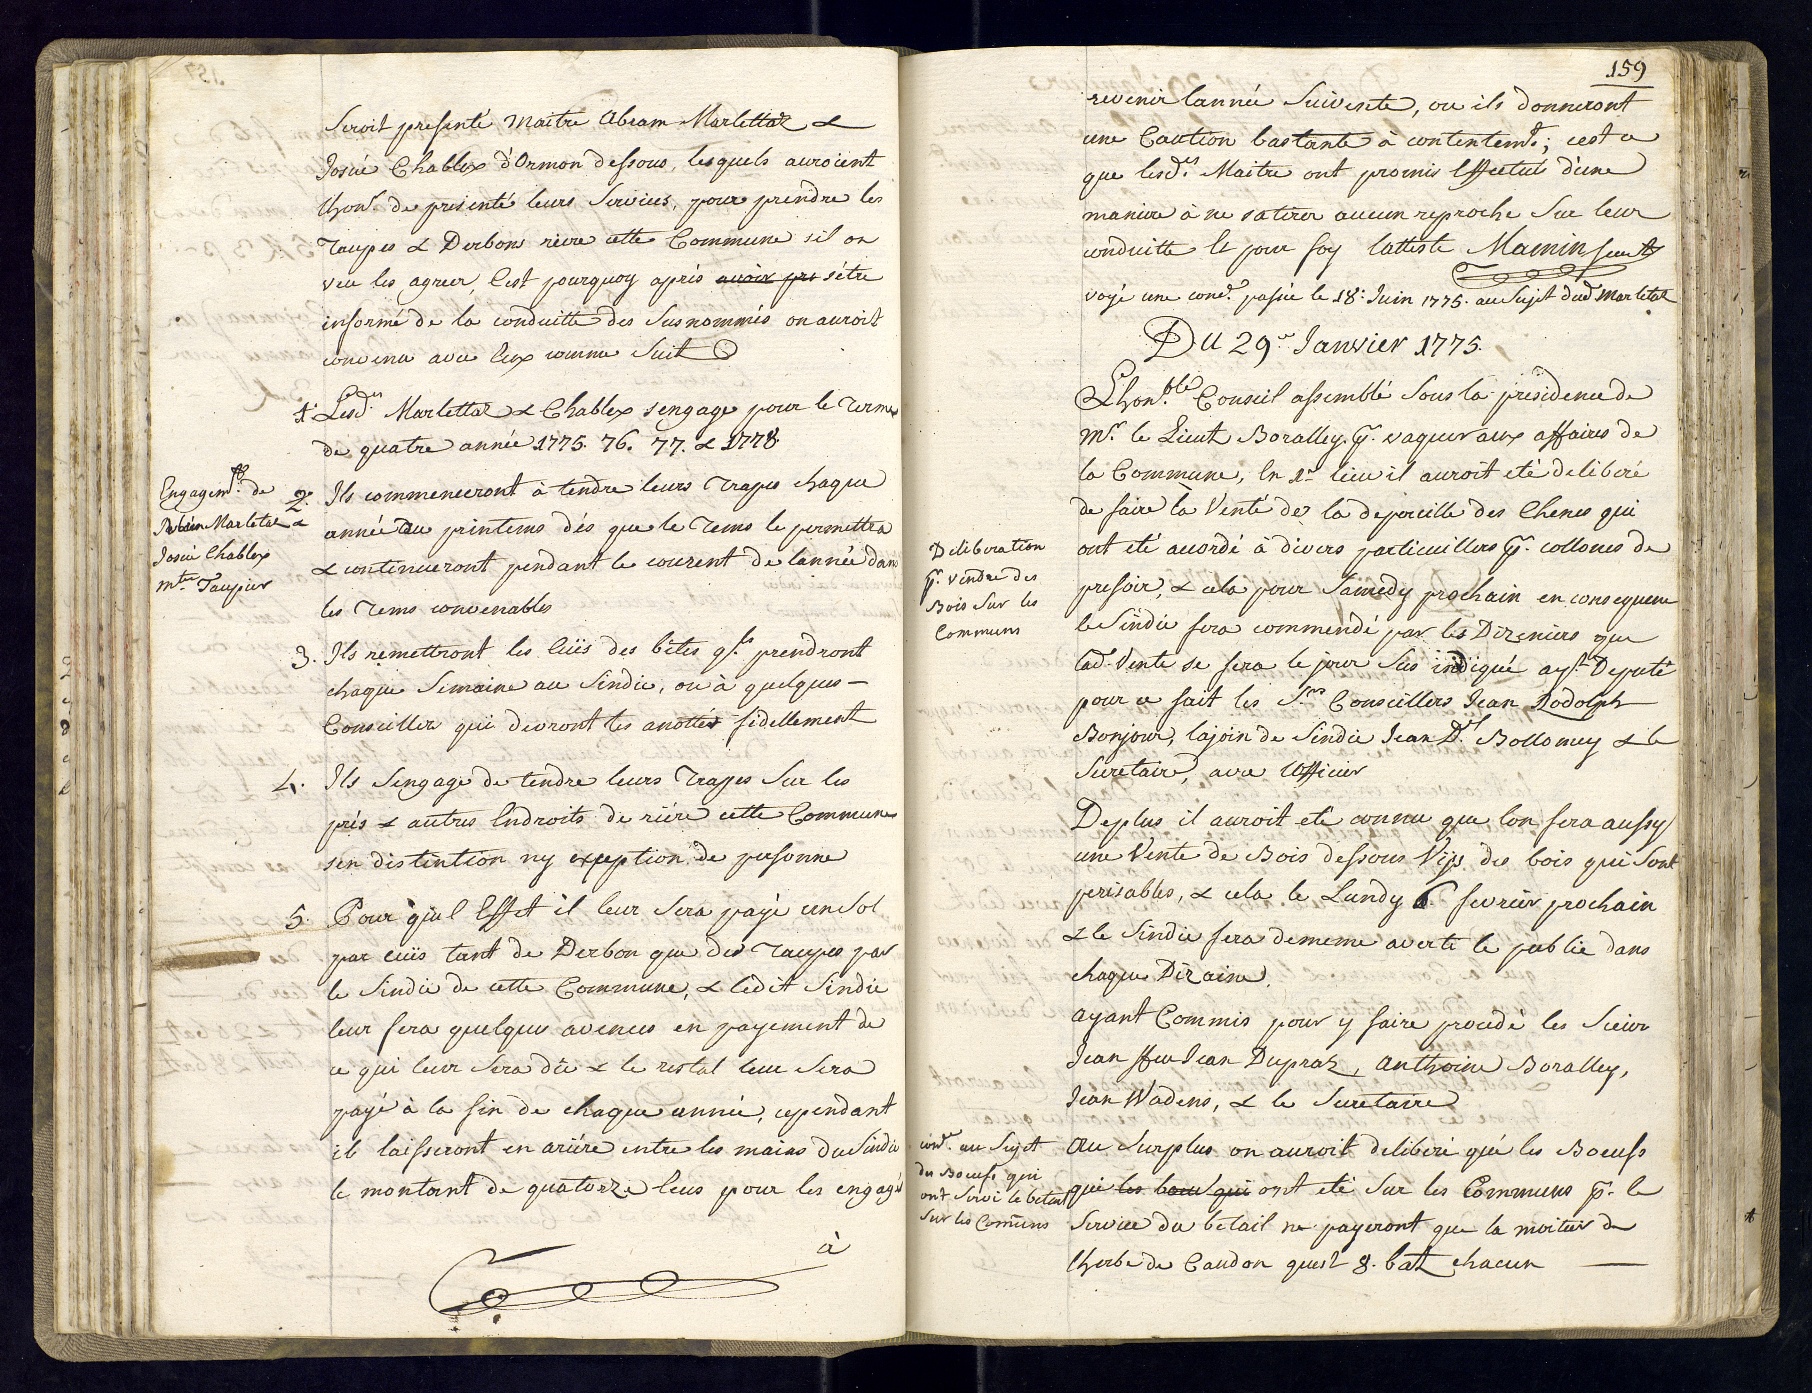 Seroit presenté Maitre Abram Marlettaz &
Josué Chablex d'Ormon dessous, lesquels auroient
lhonr. de presenté leurs Services, pour prendre les
Taupes & Derbons riere cette Commune sil on
veu les agreer, Cest pourquoy aprés avoir pri sétre
informé de la conduitte des Susnommés on auroit
convenu avec Eux comme Suit
1° Lesd.ts Marlettaz & Chablex sengage pour le Terme
de quatre année 1775. 76. 77. & 1778.
Engagemt. de
Marletaz &
Josué Chablex
mtre. Taupier
2° Ils commenceront à tendre leurs Trapes chaque
année Au printems dés que le Tems le permettra
& continueront pendant le courent de lannée dans
les Tems convenables
3. Ils remettront les cüis des bétes qls. prendront
chaque Semaine au Sindic, ou à quelques
Conseiller qui devront les anotter fidellement
4. Ils Sengage de tendre leurs Trapes Sur les
prés & autres Endroits de riére cette Commune
sen distention ny exception de personne
5. Pour quel Effet il leur Sera payé un Sol
par cüis tant de Derbon que des Taupes par
le Sindic de cette Commune, & ledit Sindic
leur fera quelques avences en payement de
ce qui leur Sera dû & le restat leur Sera
payé à la fin de chaque année, cependant
ils laisseront en ariére entre les mains du Sindic
le montant de quatorze Ecus pour les engagé
à
159
revenir lannée Suivente, ou ils donneront
une Caution bastante à contentemt.; cest a
que lesd.ts Maitre ont promis Effectué d'une
maniere à ne satirer aucun reproche Sur leur
conduitte Et pour foy latteste Mamin Secret
voyé une cond. passée le 18: Juin 1775. au Sujet dud. Marletaz
Du 29e Janvier 1775.
Lhon.ble Conseil assemblé Sous la présidence de
Mr. le Lieut Boralley. p. vaquer aux affaires de
la Commune, En 1er lieu il auroit eté deliberé
de faire la Vente de la depoeille des Chenes qui
ont eté accordé à divers particuilliers pr. collones de
presoir, & cela pour Samedy prochain en consequence
le Sindic fera commendé par les Dizeniers que
lad. Vente se fera le jour Sus indiqué ayt. Deputé
pour ce fait les Srs Conseillers Jean Rodolph
Bonjour, lajoin de Sindic Jean Dl. Bollomey & le
Secretaire, avec lofficier
Deliberation
pr. vendre des
Bois Sur les
Communs
Deplus il auroit eté connu que lon fera aussy
une Vente de Bois dessous Vips des bois qui Sont
perisables, & cela le Lundy 6. fevrier prochain
& le Sindic fera dememe averti le public dans
chaque Dizaine,
ayant Commis pour y faire procedé les Sieur
Jean ffeu Jean Dupraz, Anthoine Boralley,
Jean Wadens, & le Secretaire
cond. au Sujet
des Boeufs qui
ont Servi le betail
Sur les Comuns
Au Surplus on auroit deliberé qué les Boeufs
qui les boeuf qui ont eté Sur les Communs pr. le
Service du betail ne payeront que la moitier de
lherbe de Caudon quest 8. bat chacun